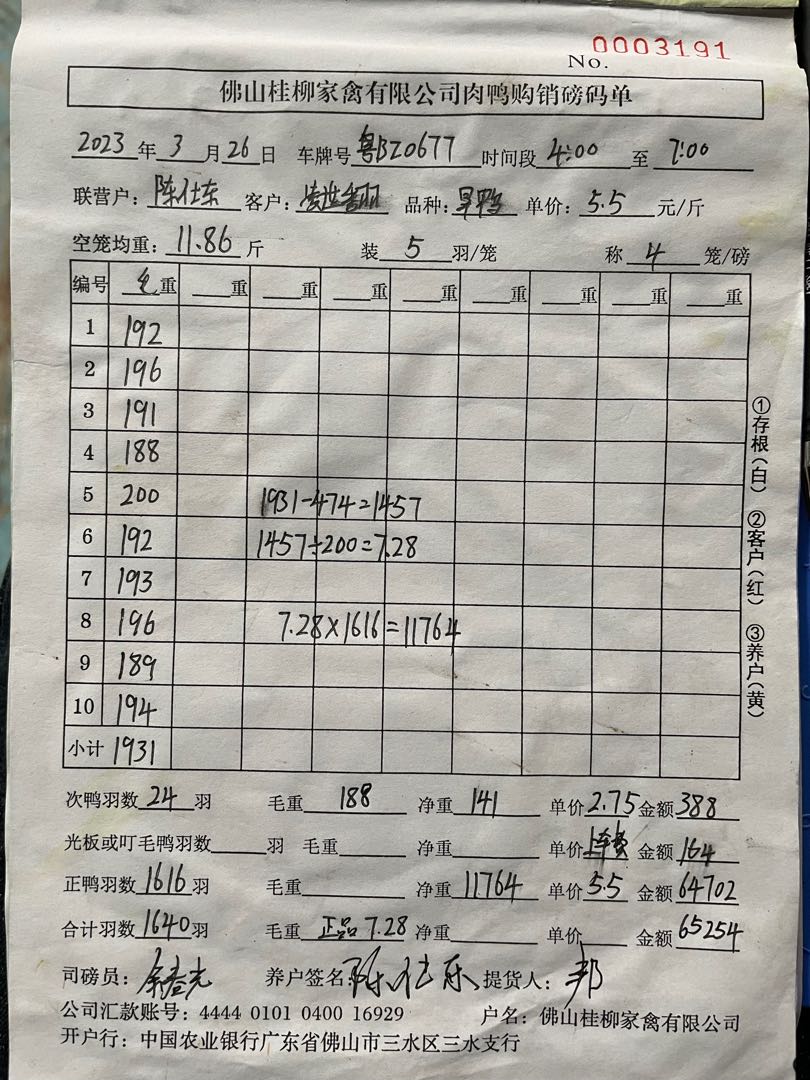 No. 0003191
佛山桂柳家禽有限公司肉鸭购销磅码单
2023 年 3 月 26 日 车牌号 粤BZ0677 时间段 4:00 至 7:00
联营户: 陈仕东 客户: 品种: 旱鸭 单价: 5.5 元/斤
空笼均重: 11.86 斤 装 5 羽/笼 称 4 笼/磅
编号 毛重 重 重 重 重 重 重 重 重
1 192
2 196
3 191
4 188
5 200 1931-474=1457
6 192 1457÷200=7.28
7 193
8 196 7.28×1616=11764
9 189
10 194
小计 1931
①存根(白) ②客户(红) ③养户(黄)
次鸭羽数 24 羽 毛重 188 净重 141 单价 2.75 金额 388
光板或叮毛鸭羽数 羽 毛重 净重 单价 上车费 金额 164
正鸭羽数 1616 羽 毛重 净重 11764 单价 5.5 金额 64702
合计羽数 1640 羽 毛重 正品 7.28 净重 单价 金额 65254
司磅员: 养户签名: 陈仕东 提货人: 邦
公司汇款账号: 4444 0101 0400 16929 户名: 佛山桂柳家禽有限公司
开户行: 中国农业银行广东省佛山市三水区三水支行